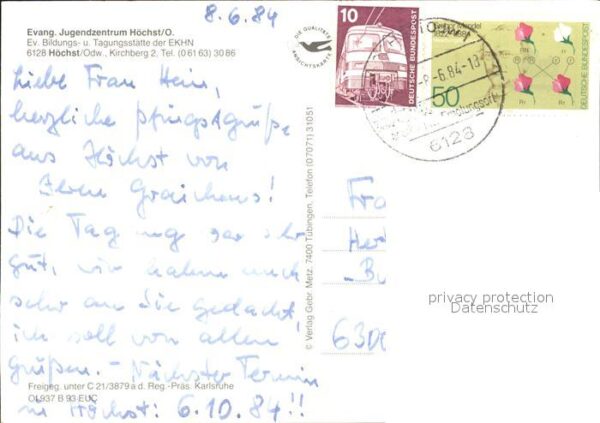 8.6.84
Evang. Jugendzentrum Höchst/O.
Ev. Bildungs- u. Tagungsstätte der EKHN
6128 Höchst/Odw., Kirchberg 2, Tel. (0 61 63) 30 86
Liebe Frau Hein,
herzliche Pfingstgrüße
aus Höchst von
Ihren
Die Tagung war sehr
gut, wir haben auch
sehr an Sie gedacht,
ich soll von allen
grüßen. - Nächster Termin
in Höchst: 6.10.84!!
Freigeg. unter C 21/3879 a d. Reg.-Präs. Karlsruhe
OL 937 B 93 EUC
DIE QUALITÄTS
ANSICHTSKARTE
© Verlag Gebr. Metz, 7400 Tübingen, Telefon (07071) 31051
10
DEUTSCHE BUNDESPOST
Gregor Mendel
1822-1884
50
DEUTSCHE BUNDESPOST
-6.84-13
6128
Fra
Her
6300
privacy protection
Datenschutz